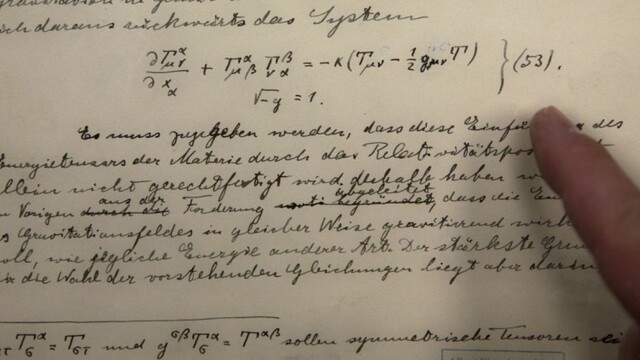 daraus rückwärts das System
∂Γ^α_μν/∂x_α + Γ^α_μβ Γ^β_να = -κ(T_μν - 1/2 g_μν T) } (53).
√-g = 1.
Es muss zugegeben werden, dass diese des
Energietensors der Materie durch das
allein nicht gerechtfertigt wird; deshalb haben
Vorigen aus der Forderung abgeleitet, dass die
Gravitationsfeldes in gleicher Weise gravitierend
soll, wie jegliche Energie anderer Art. Der stärkste
die Wahl der vorstehenden Gleichungen liegt aber darin
T_σ^α = T_στ und g^σβ T_σ^α = T^αβ sollen symmetrische Tensoren